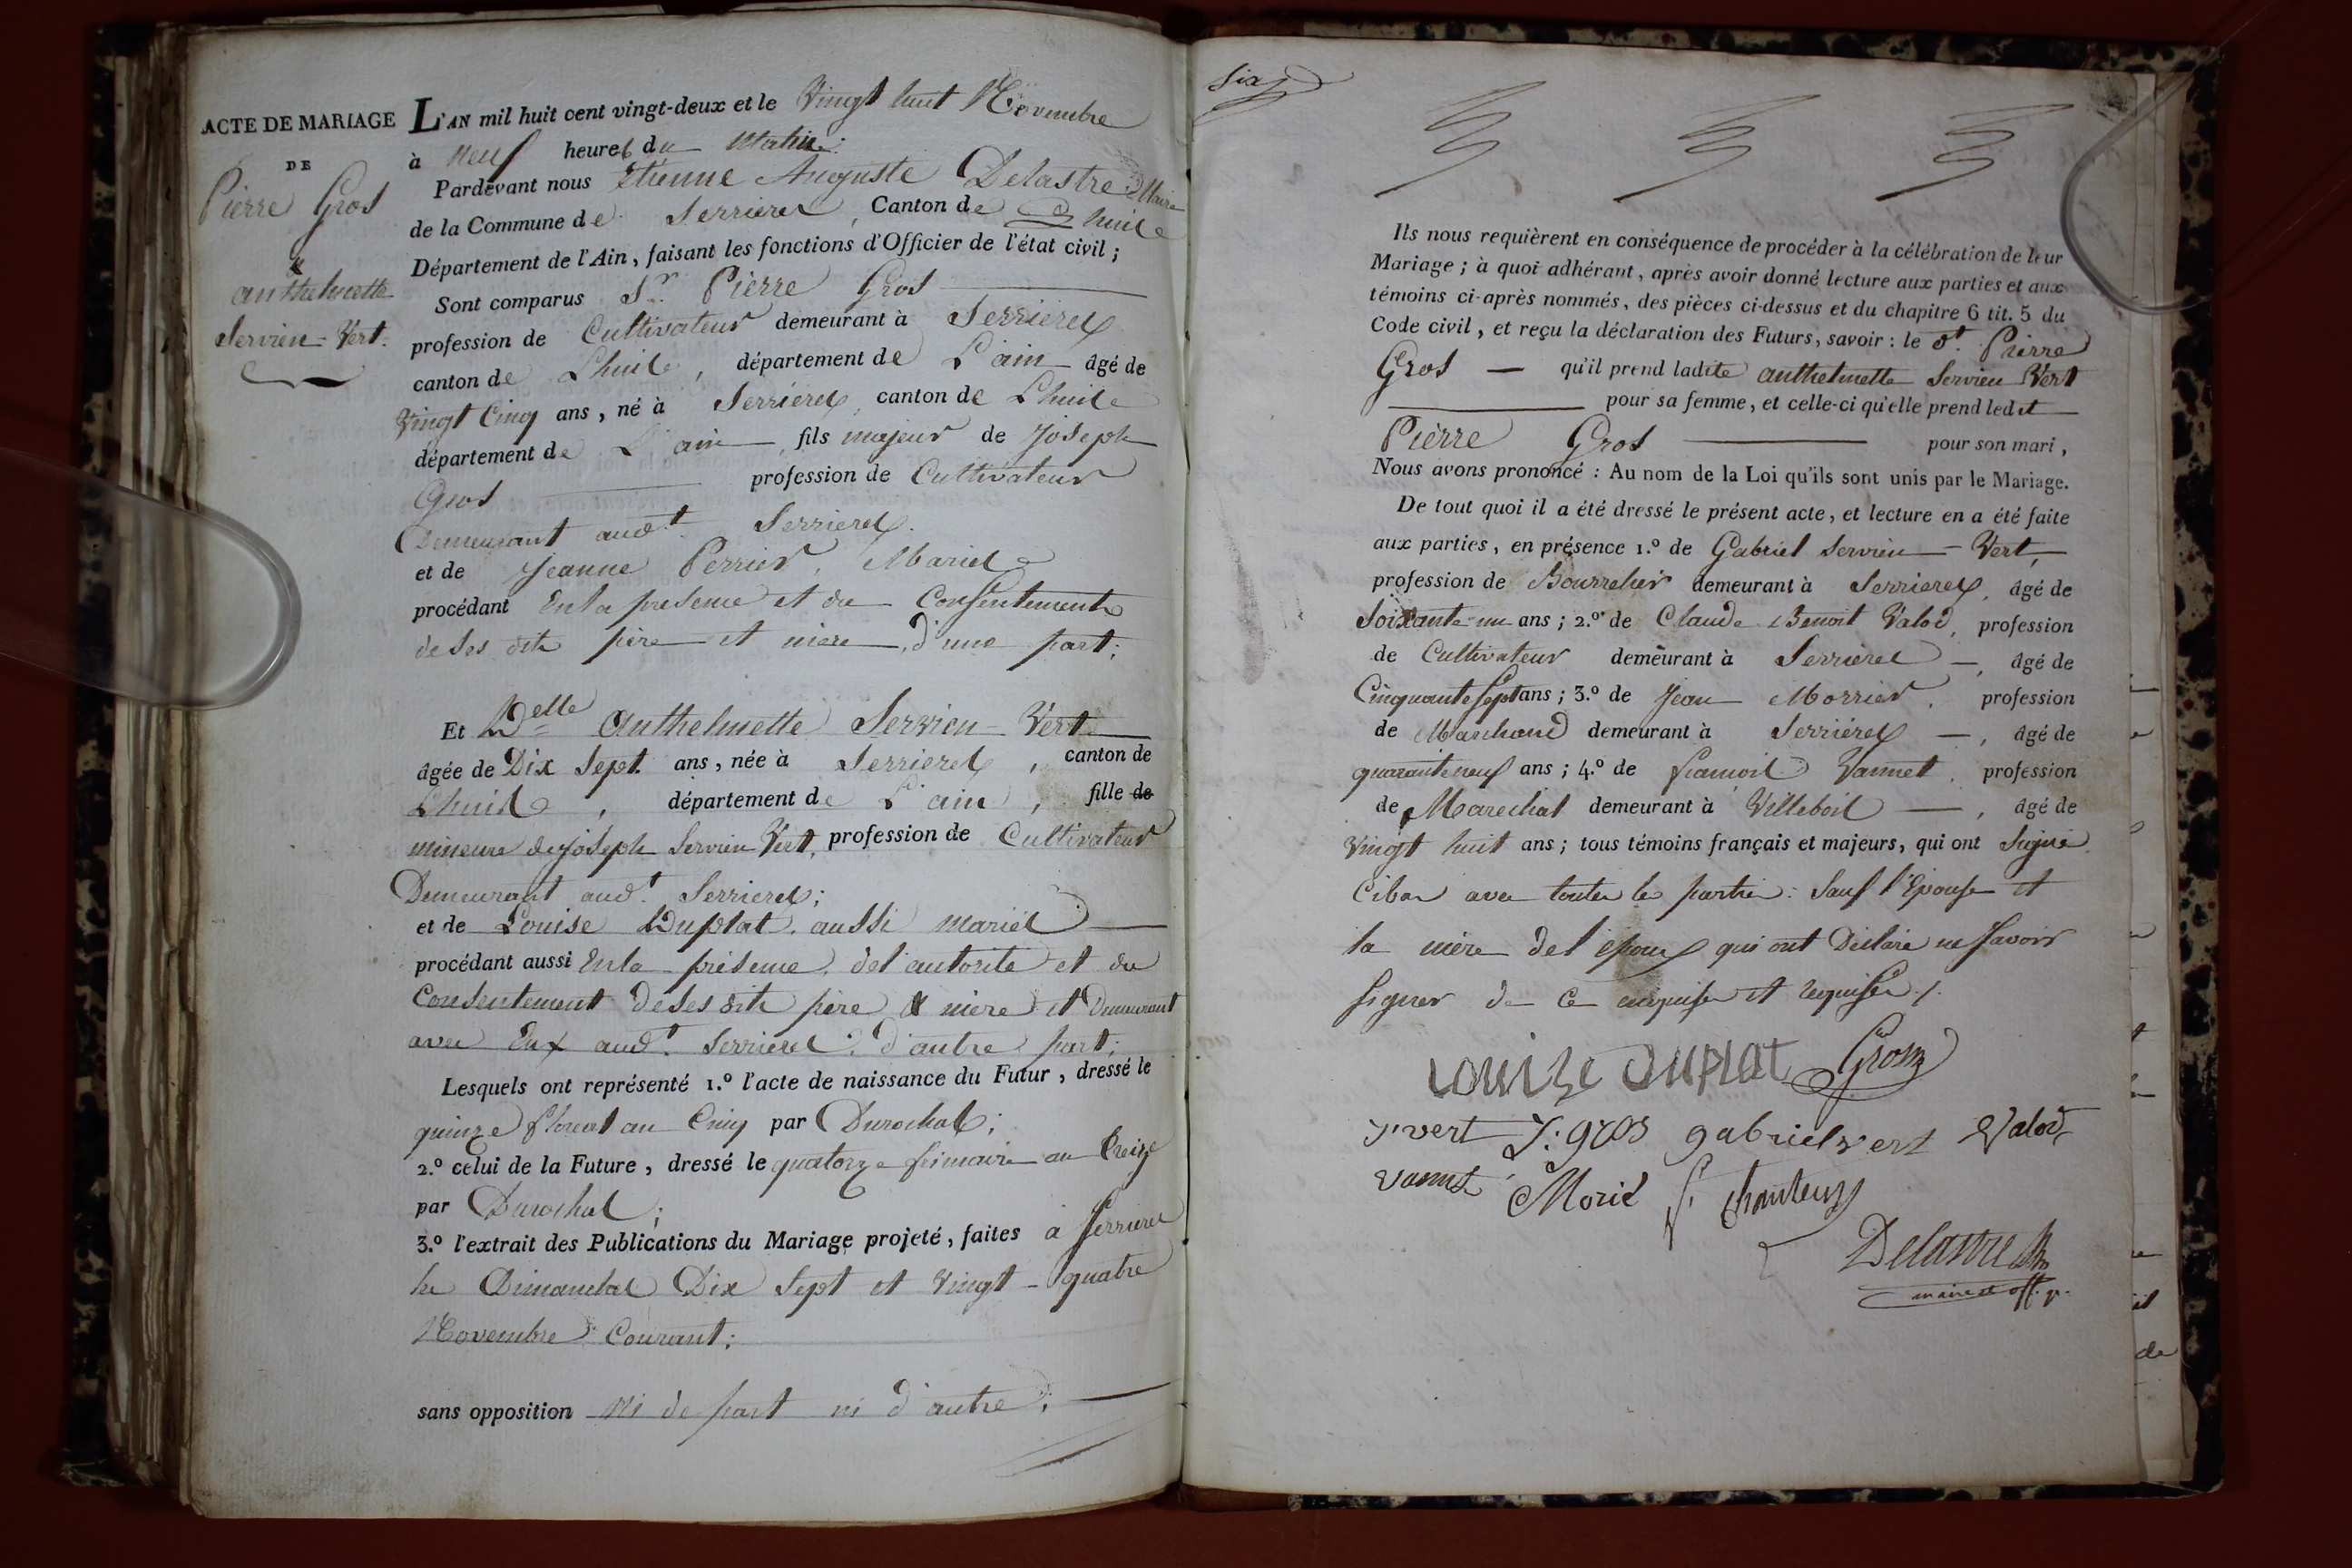 ACTE DE MARIAGE
DE
Pierre Gros
&
anthelmette
Servieu = Vert.
L'AN mil huit cent vingt-deux et le Vingt huit Novembre
à neuf heures du Matin:
Pardevant nous Etienne Auguste Delastre Maire
de la Commune de Serrieres, Canton de Lhuis
Département de l'Ain, faisant les fonctions d'Officier de l'état civil;
Sont comparus Sr. Pierre Gros
profession de Cultivateur demeurant à Serrieres
canton de Lhuis, département de L'ain âgé de
Vingt Cinq ans, né à Serrieres, canton de Lhuis
département de L'ain, fils majeur de Joseph
Gros profession de Cultivateur
Demeurant audt. Serrieres.
et de Jeanne Perrier, Mariés
procédant En la presence et du Consentement
de ses dits père et mère, d'une part;
Et Delle anthelmette Servieu = Vert
âgée de Dix Sept. ans, née à Serrieres, canton de
Lhuis, département de L'ain, fille de
mineure de joseph Servieu Vert, profession de Cultivateur
Demeurant audt. Serrieres;
et de Louise Duplat, aussi mariés
procédant aussi En la présence, de l'autorité et du
Consentement de ses dits père & mère et Demeurant
avec Eux audt. Serrieres. d'autre part;
Lesquels ont représenté 1.º l'acte de naissance du Futur, dressé le
quinze floréal an Cinq par Durochat;
2.º celui de la Future, dressé le quatorze frimaire an treize
par Durochat;
3.º l'extrait des Publications du Mariage projeté, faites à Serrieres
les Dimanches Dix Sept et Vingt - quatre
Novembre Courant;
sans opposition ni de part ni d'autre;
six
Ils nous requièrent en conséquence de procéder à la célébration de leur
Mariage; à quoi adhérant, après avoir donné lecture aux parties et aux
témoins ci-après nommés, des pièces ci-dessus et du chapitre 6 tit. 5 du
Code civil, et reçu la déclaration des Futurs, savoir: le dt. Pierre
Gros — qu'il prend ladite anthelmette Servieu Vert
pour sa femme, et celle-ci qu'elle prend ledit
Pierre Gros pour son mari,
Nous avons prononcé: Au nom de la Loi qu'ils sont unis par le Mariage.
De tout quoi il a été dressé le présent acte, et lecture en a été faite
aux parties, en présence 1.º de Gabriel Servieu = Vert,
profession de Bourrelier demeurant à Serrieres, âgé de
Soixante un ans; 2.º de Claude Benoit Valod, profession
de Cultivateur demeurant à Serrieres —, âgé de
Cinquante Sept ans; 3.º de Jean Morrier, profession
de Marchand demeurant à Serrieres —, âgé de
quarante neuf ans; 4.º de francois Vannet, profession
de Marechal demeurant à Villebois —, âgé de
Vingt huit ans; tous témoins français et majeurs, qui ont Signé
Cibas avec toutes les parties: Sauf l'Epouse et
la mère de l'epoux qui ont Déclaré ne Savoir
Signer de ce enquises et requises ./.
LOUIZE DUPLAT Gros
J. vert J. gros gabriel vert Valod
vannet Morié
Delastre
maire et off. p.